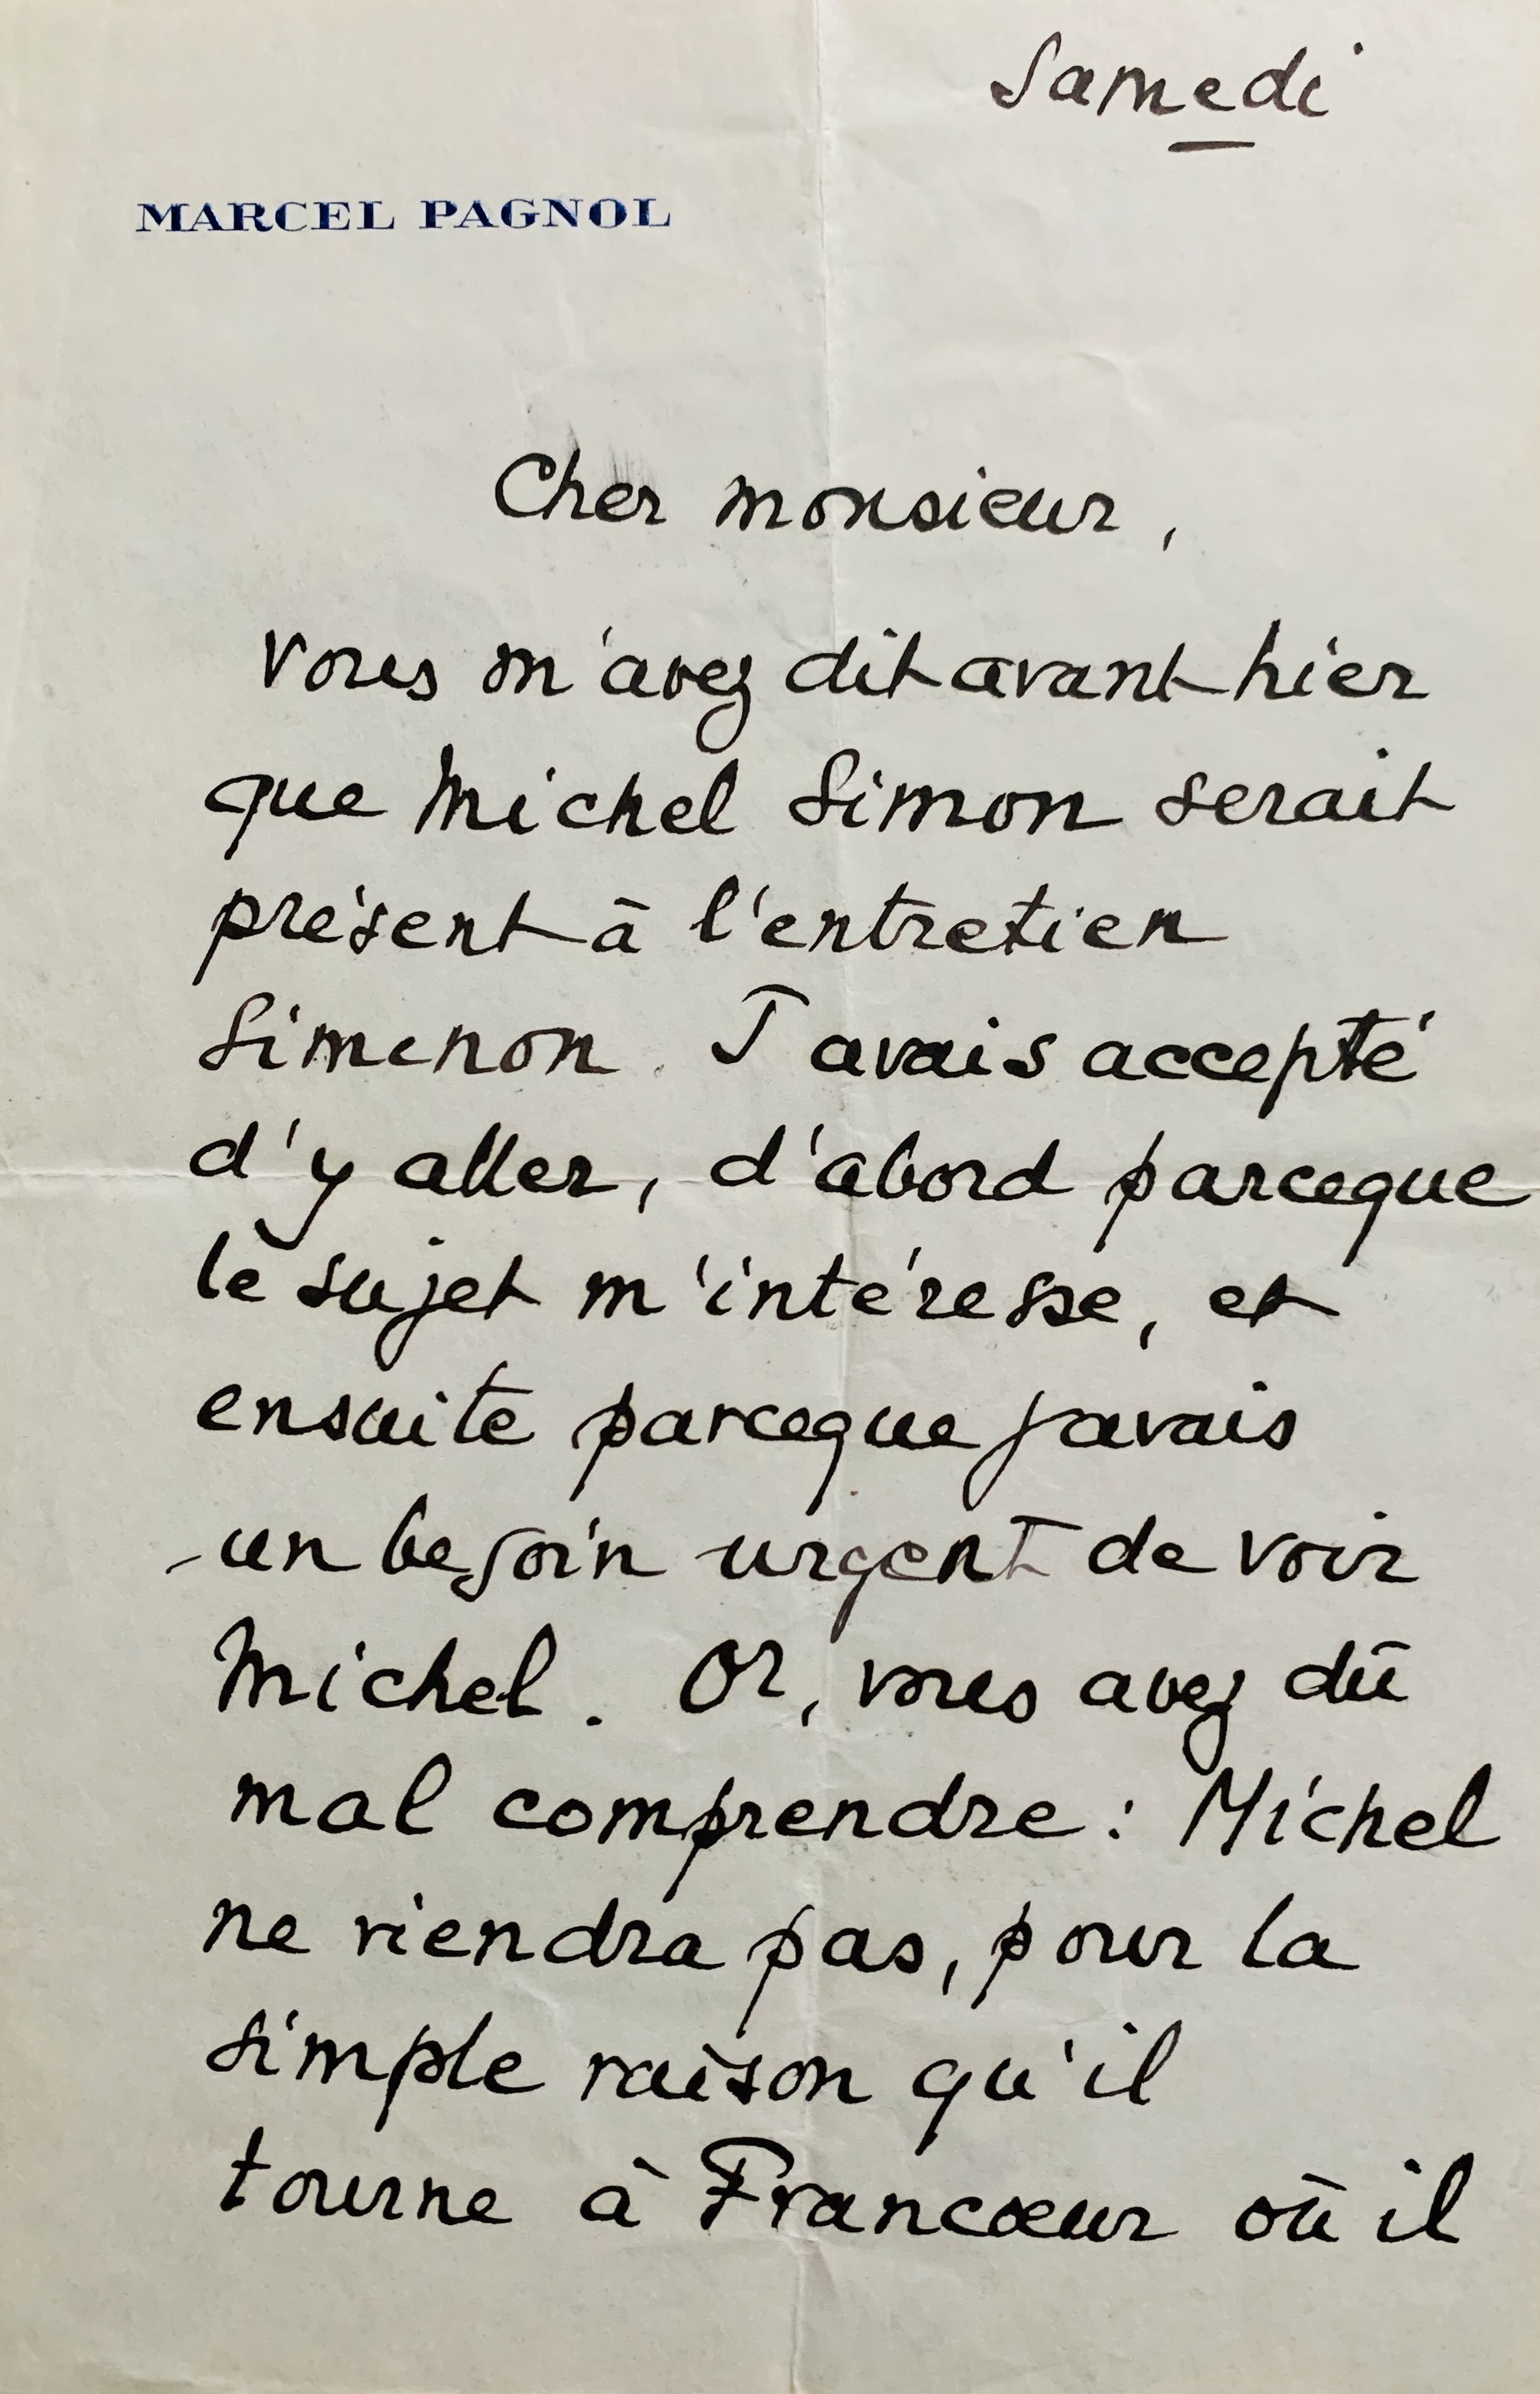 Samedi
MARCEL PAGNOL
Cher monsieur,
vous m'avez dit avant hier
que Michel Simon serait
présent à l'entretien
Simenon. J'avais accepté
d'y aller, d'abord parceque
le sujet m'intéresse, et
ensuite parceque j'avais
un besoin urgent de voir
Michel. Or, vous avez dû
mal comprendre : Michel
ne viendra pas, pour la
simple raison qu'il
tourne à Francœur où il